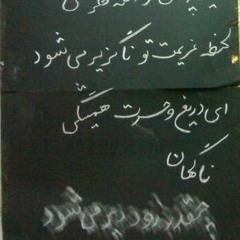 لحظه عزیمت تو ناگزیر می‌شود
ای دریغ و حسرت همیشگی
ناگهان
چقدر زود دیر می‌شود